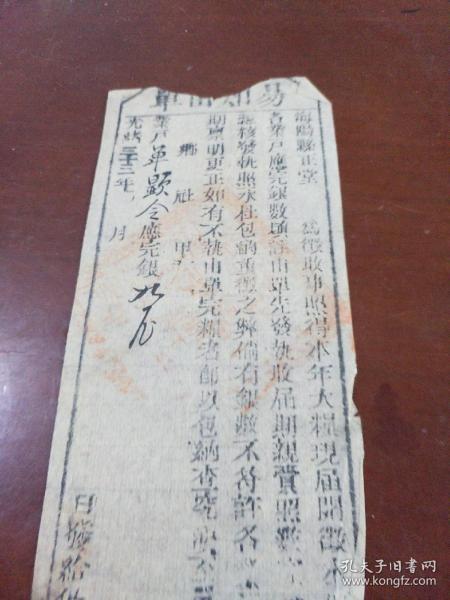 易知由單
海陽縣正堂 為徵收事照得本年大糧現届開徵
各業戶應完銀數填註由單先發執收届期親賫照數
發執照永杜包納重徵之弊倘有銀數不符許各
期稟明更正如有不執由單完糧者即以包納查究
鄉 社 甲
業戶單顯令應完銀
光緒三十三年 月
日發給
孔夫子旧书网
book.kongfz.com